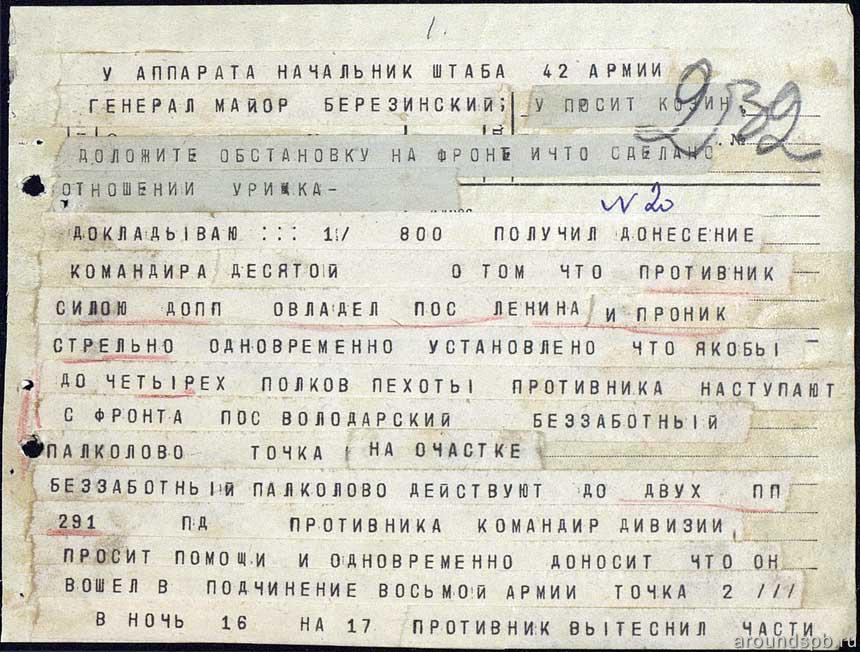 1.
У АППАРАТА НАЧАЛЬНИК ШТАБА 42 АРМИИ
ГЕНЕРАЛ МАЙОР БЕРЕЗИНСКИЙ; У ПОСИТ КОЗИН,
2932
№
ДОЛОЖИТЕ ОБСТАНОВКУ НА ФРОНЕ ИЧТО СДЕЛАНО
ОТНОШЕНИИ УРИЖКА-
N 20
ДОКЛАДЫВАЮ ::: 1/ 800 ПОЛУЧИЛ ДОНЕСЕНИЕ
КОМАНДИРА ДЕСЯТОЙ О ТОМ ЧТО ПРОТИВНИК
СИЛОЮ ДОПП ОВЛАДЕЛ ПОС ЛЕНИНА И ПРОНИК
СТРЕЛЬНО ОДНОВРЕМЕННО УСТАНОВЛЕНО ЧТО ЯКОБЫ
ДО ЧЕТЫРЕХ ПОЛКОВ ПЕХОТЫ ПРОТИВНИКА НАСТУПАЮТ
С ФРОНТА ПОС ВОЛОДАРСКИЙ БЕЗЗАБОТНЫЙ
ПАЛКОЛОВО ТОЧКА НА ОЧАСТКЕ
БЕЗЗАБОТНЫЙ ПАЛКОЛОВО ДЕЙСТВУЮТ ДО ДВУХ ПП
291 ПД ПРОТИВНИКА КОМАНДИР ДИВИЗИИ
ПРОСИТ ПОМОЩИ И ОДНОВРЕМЕННО ДОНОСИТ ЧТО ОН
ВОШЕЛ В ПОДЧИНЕНИЕ ВОСЬМОЙ АРМИИ ТОЧКА 2 ///
В НОЧЬ 16 НА 17 ПРОТИВНИК ВЫТЕСНИЛ ЧАСТИ
aroundspb.ru